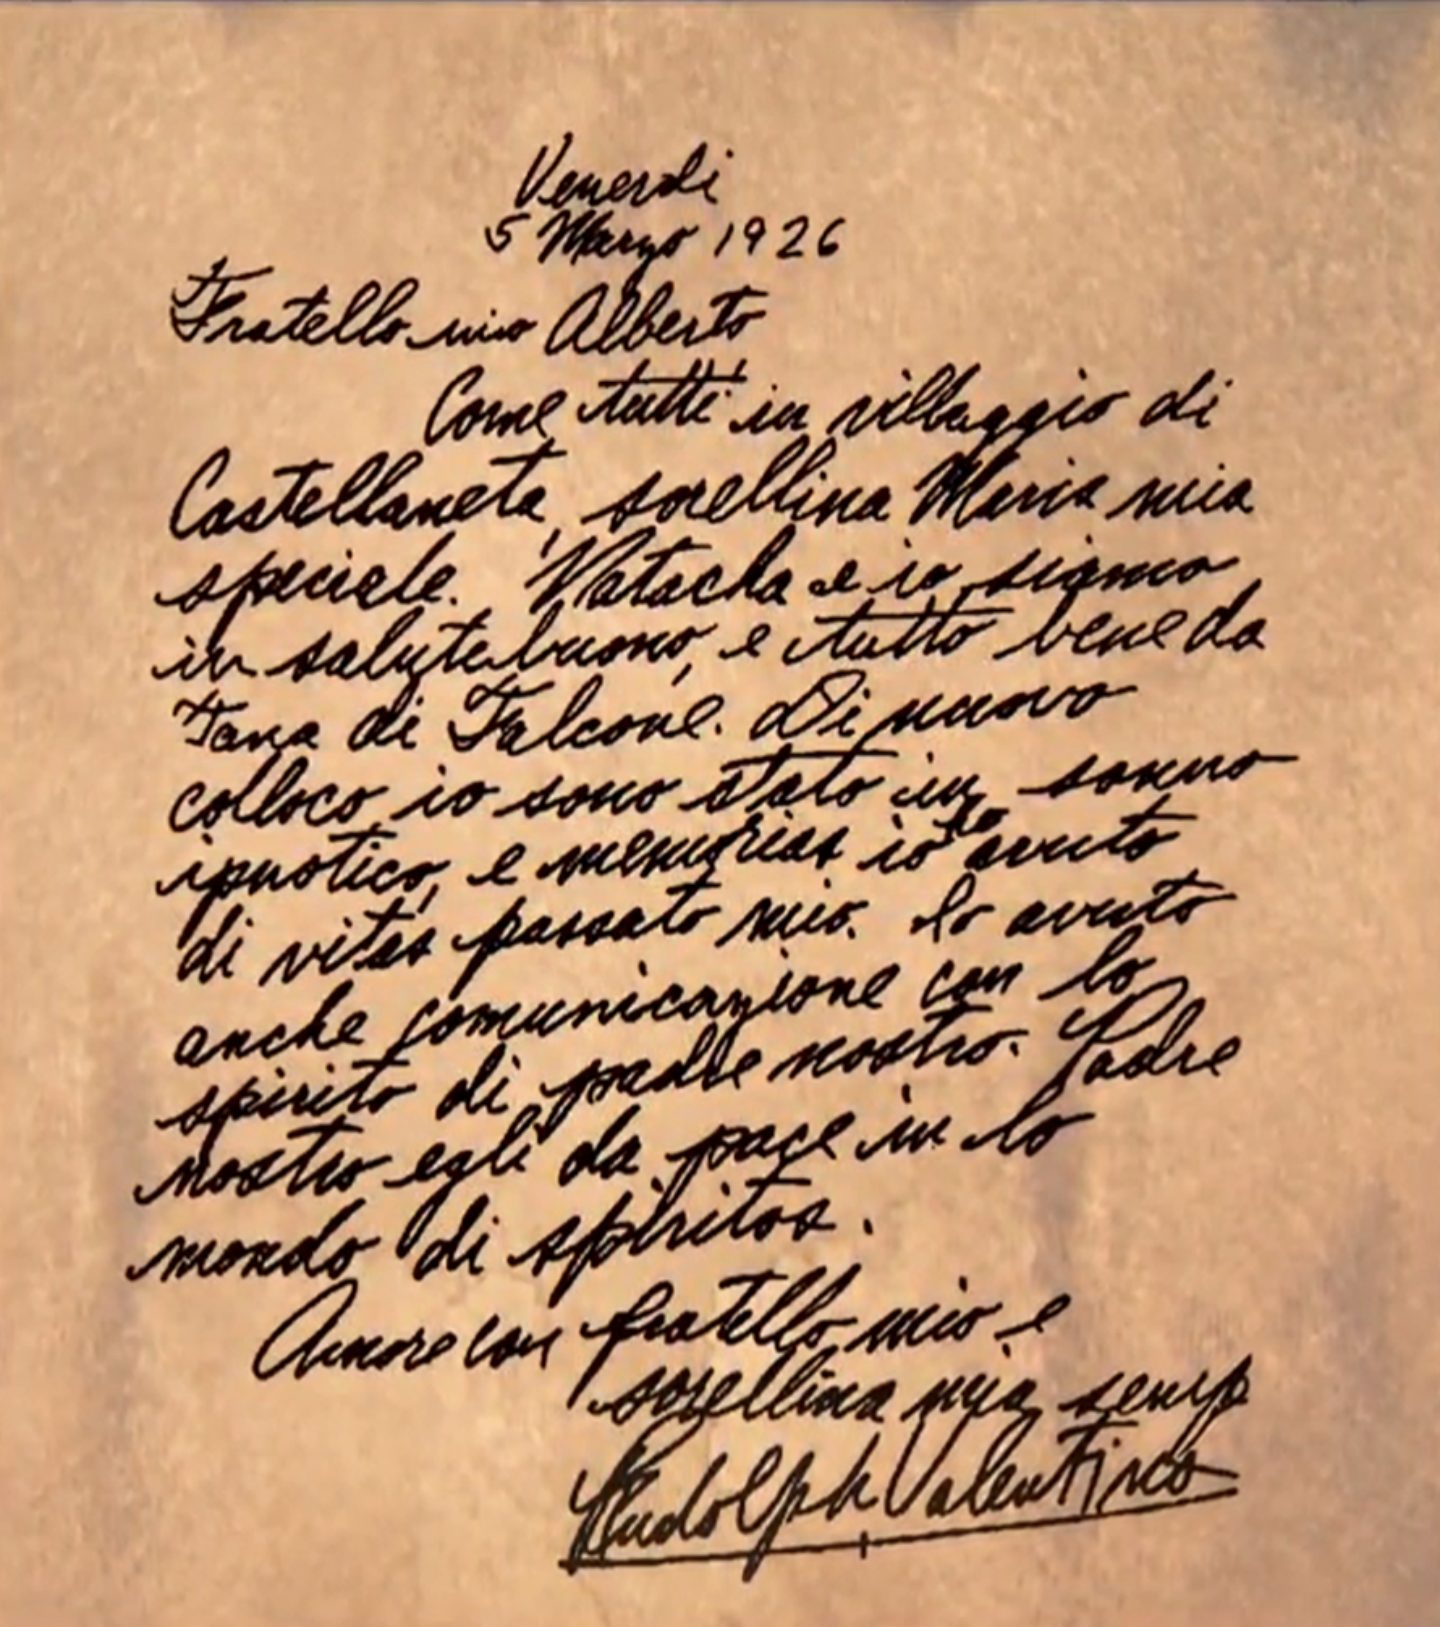 Venerdi
5 Marzo 1926
Fratello mio Alberto
Come tutti in villaggio di
Castellaneta, sorellina Maria mia
speciale. Natacha e io siamo
in salute buono, e tutto bene da
Tana di Falcone. Di nuovo
colloco io sono stato in sonno
ipnotico, e memorias io ho avuto
di vitas passato mio. Io avuto
anche comunicazione con lo
spirito di padre nostro. Padre
nostro egli da pace in lo
mondo di spiritos.
Amore con fratello mio e
sorellina mia semp
Rudolph Valentino